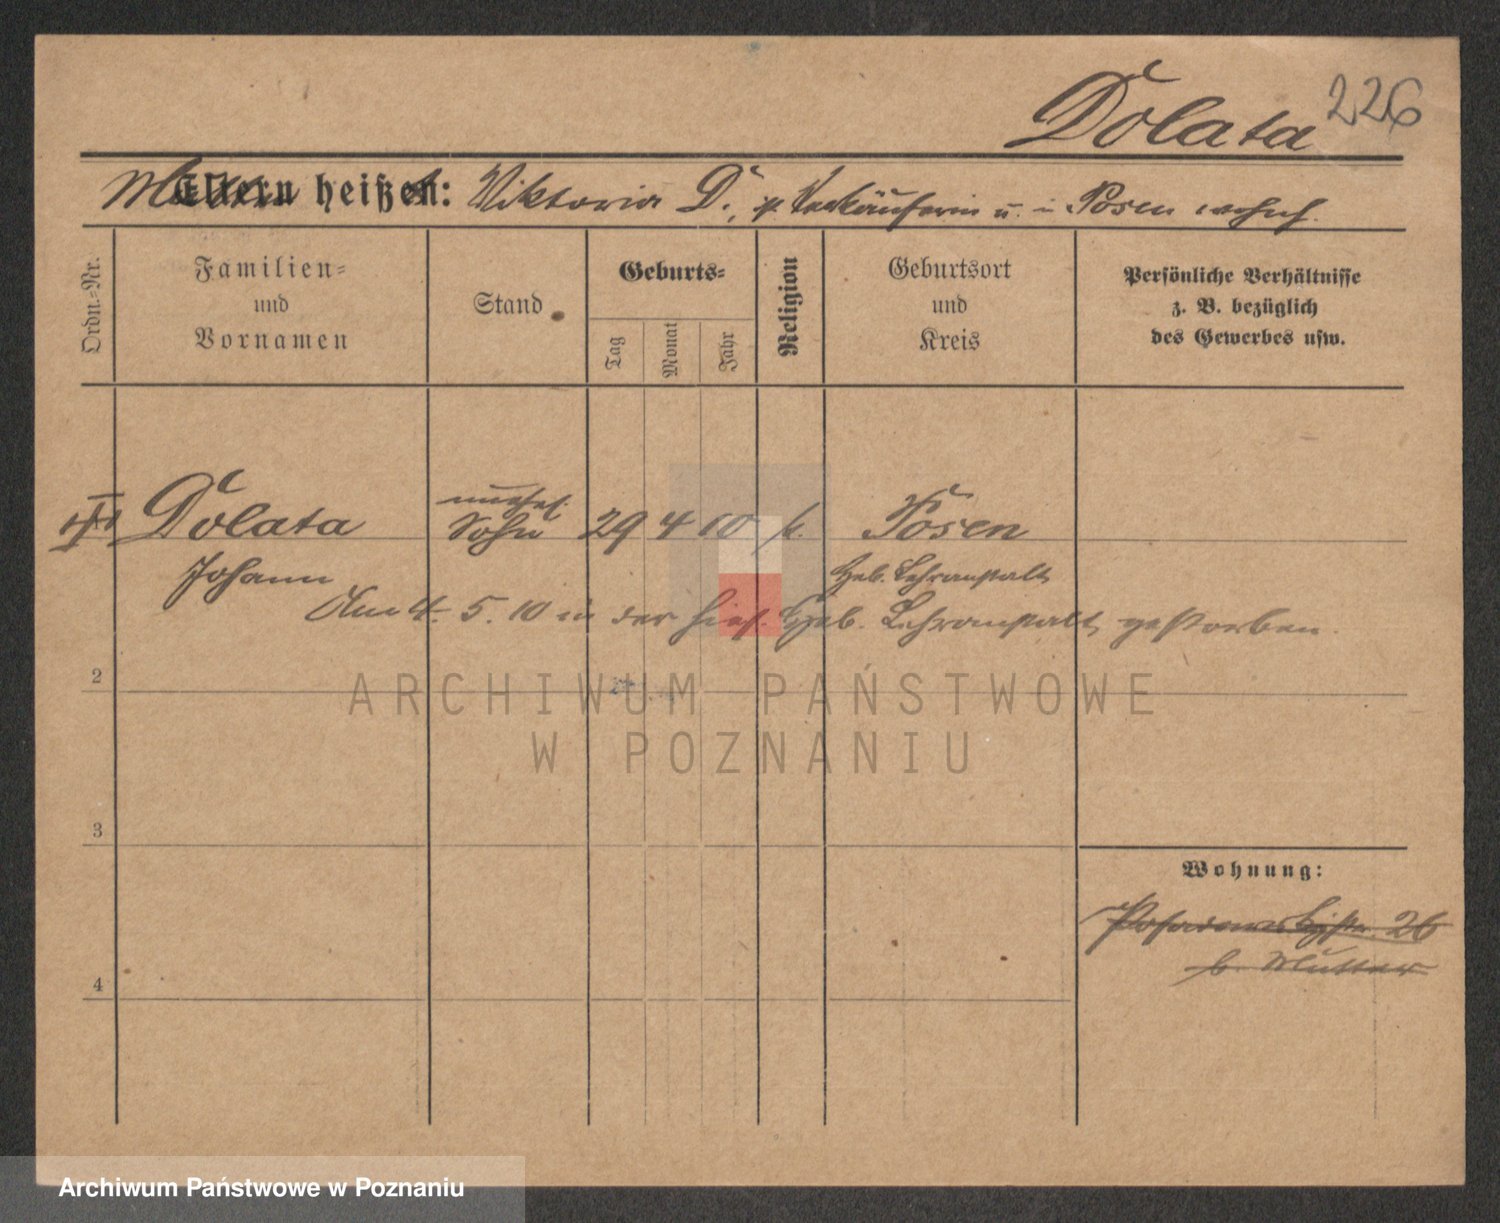 Dolata 226
Mutter heißt: Viktoria D., Verkäuferin u. in Posen wohnh.
Ordn.-Nr.
Familien-
und
Vornamen
Stand
Geburts-
Tag
Monat
Jahr
Religion
Geburtsort
und
Kreis
Persönliche Verhältnisse
z. B. bezüglich
des Gewerbes usw.
Dolata
unehel.
Sohn
29 4 10 k.
Posen
Johann
Heb. Lehranstalt
Am 4. 5. 10 in der hies. Heb. Lehranstalt gestorben.
2
ARCHIWUM PAŃSTWOWE
W POZNANIU
3
Wohnung:
26
b. Mutter
4
Archiwum Państwowe w Poznaniu